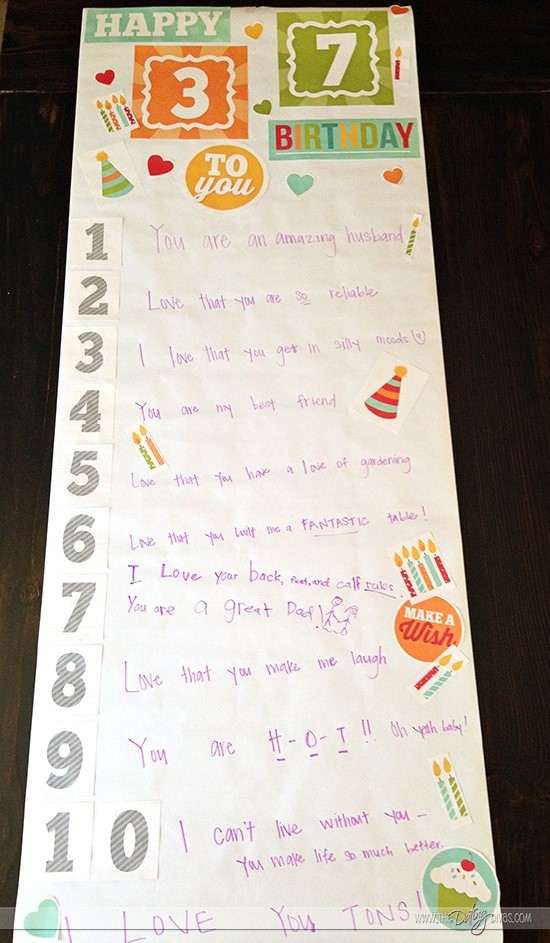 HAPPY
3 7
BIRTHDAY
TO
you
1 You are an amazing husband
2 Love that you are so reliable
3 I love that you get in silly moods
4 You are my best friend
5 Love that you have a love of gardening
6 Love that you built me a FANTASTIC table!
I Love your back, feet, and calf rubs.
7 You are a great Dad!
MAKE A
Wish
8 Love that you make me laugh
9 You are H-O-T!! Oh yeah baby!
10 I can't live without you -
you make life so much better.
I LOVE YOU TONS!
WWW.THEDatingDIVAS.COM